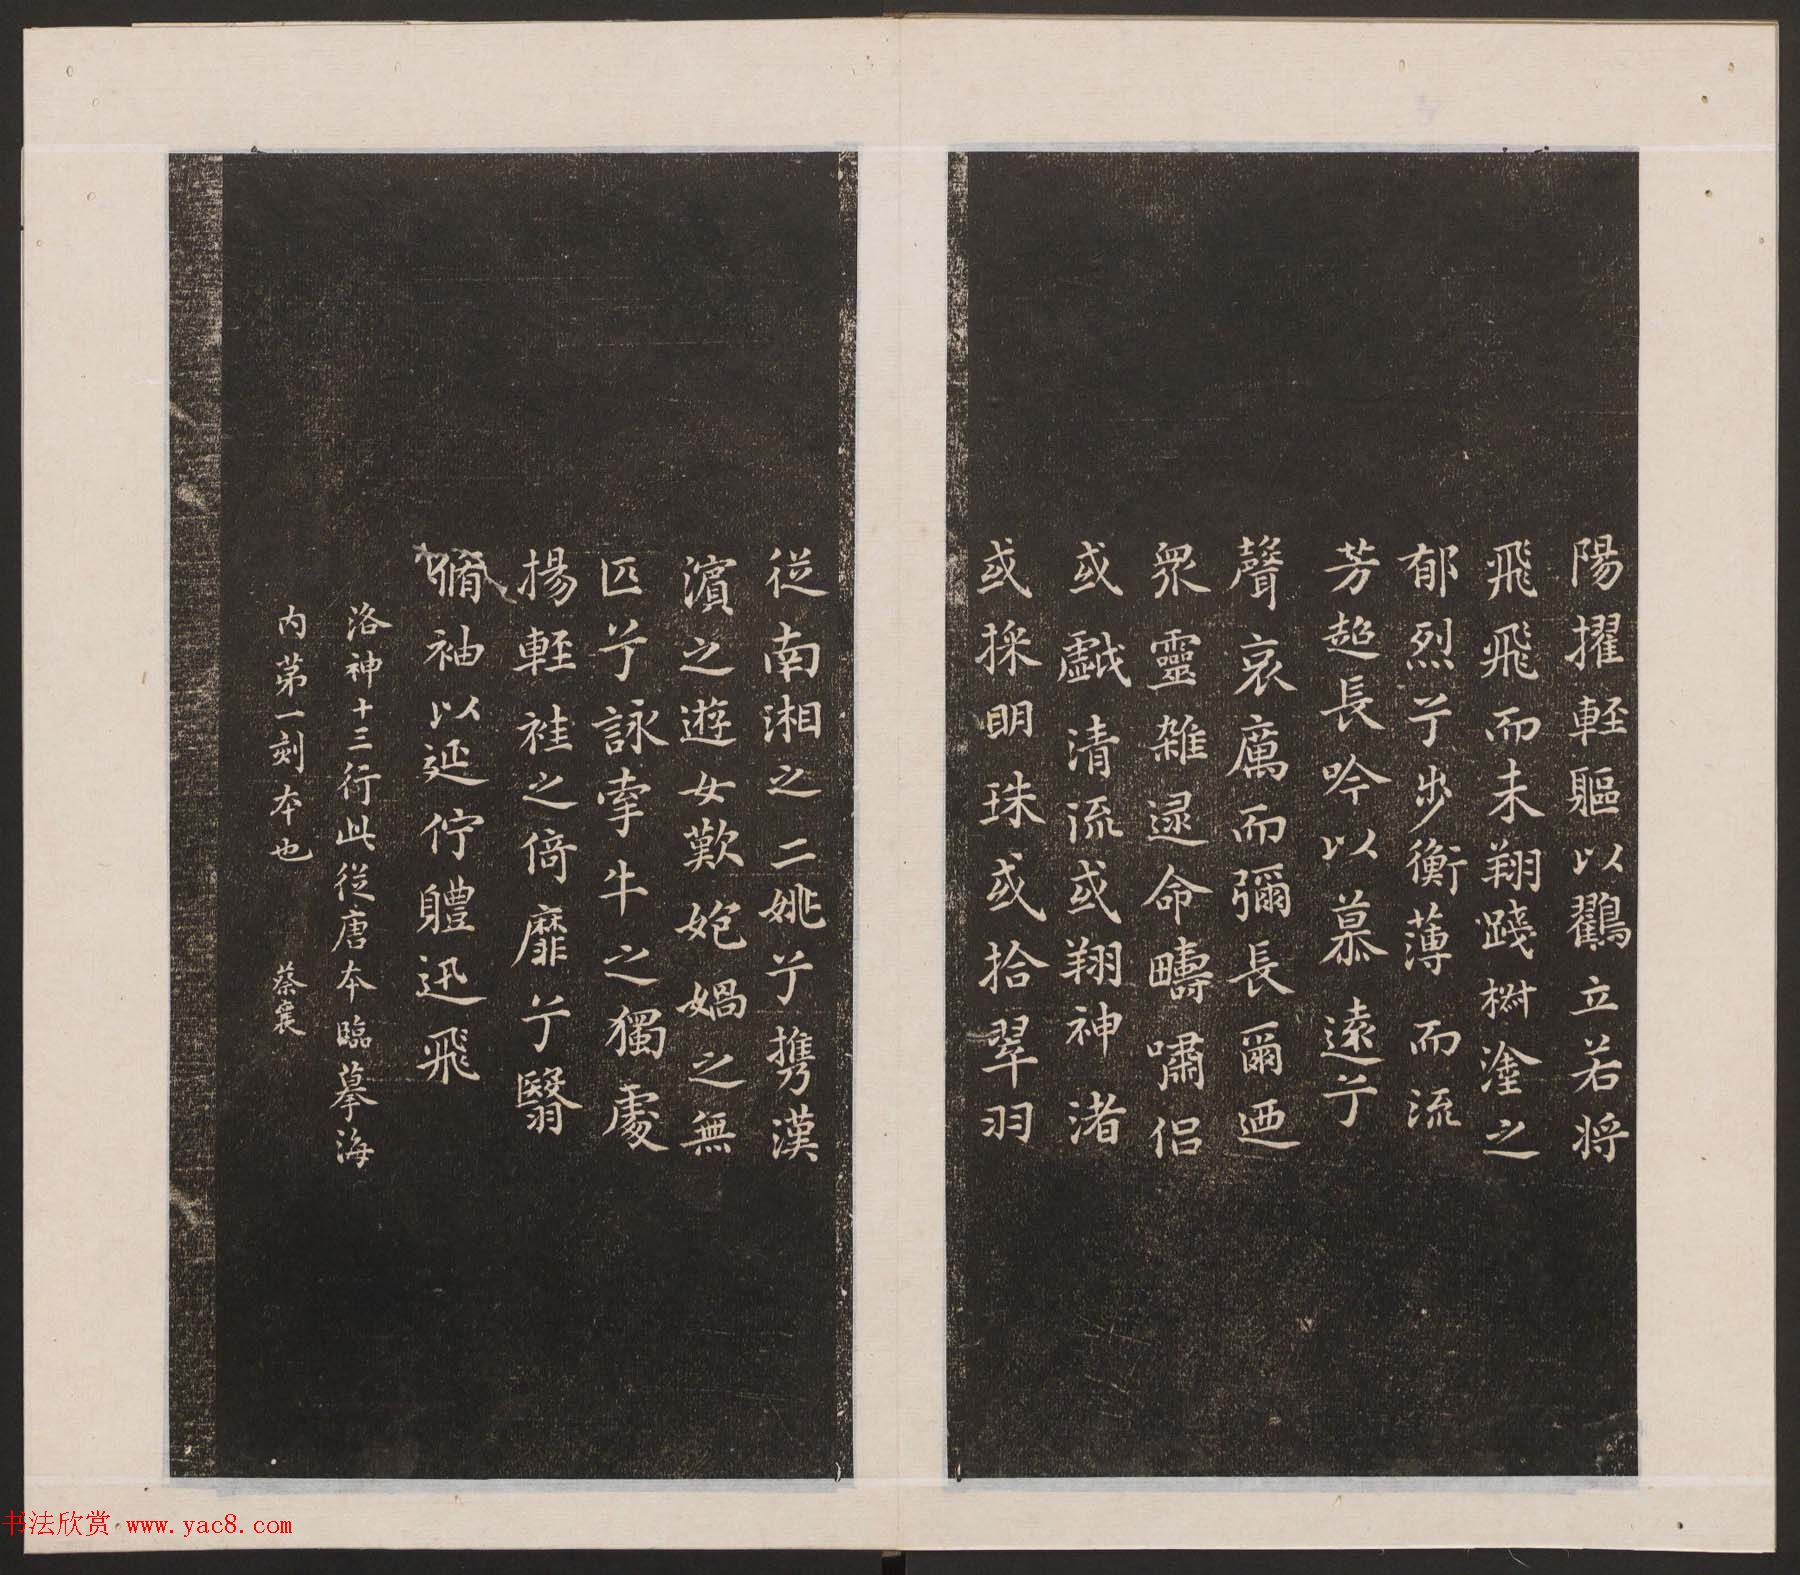 陽擢輊軀以鸖立若将
飛飛而未翔踐樹塗之
郁烈兮步衡薄而流
芳超長吟以慕遠兮
聲哀厲而彌長爾迺
眾靈雜逯命疇嘯侣
或戲清流或翔神渚
或採明珠或拾翠羽
從南湘之二姚兮携漢
濱之遊女歎匏媧之無
匹兮詠牽牛之獨處
揚輊袿之倚靡兮翳
脩袖以延佇軆迅飛
洛神十三行此從唐本臨摹海
内苐一刻本也 蔡襄
书法欣赏 www.yac8.com